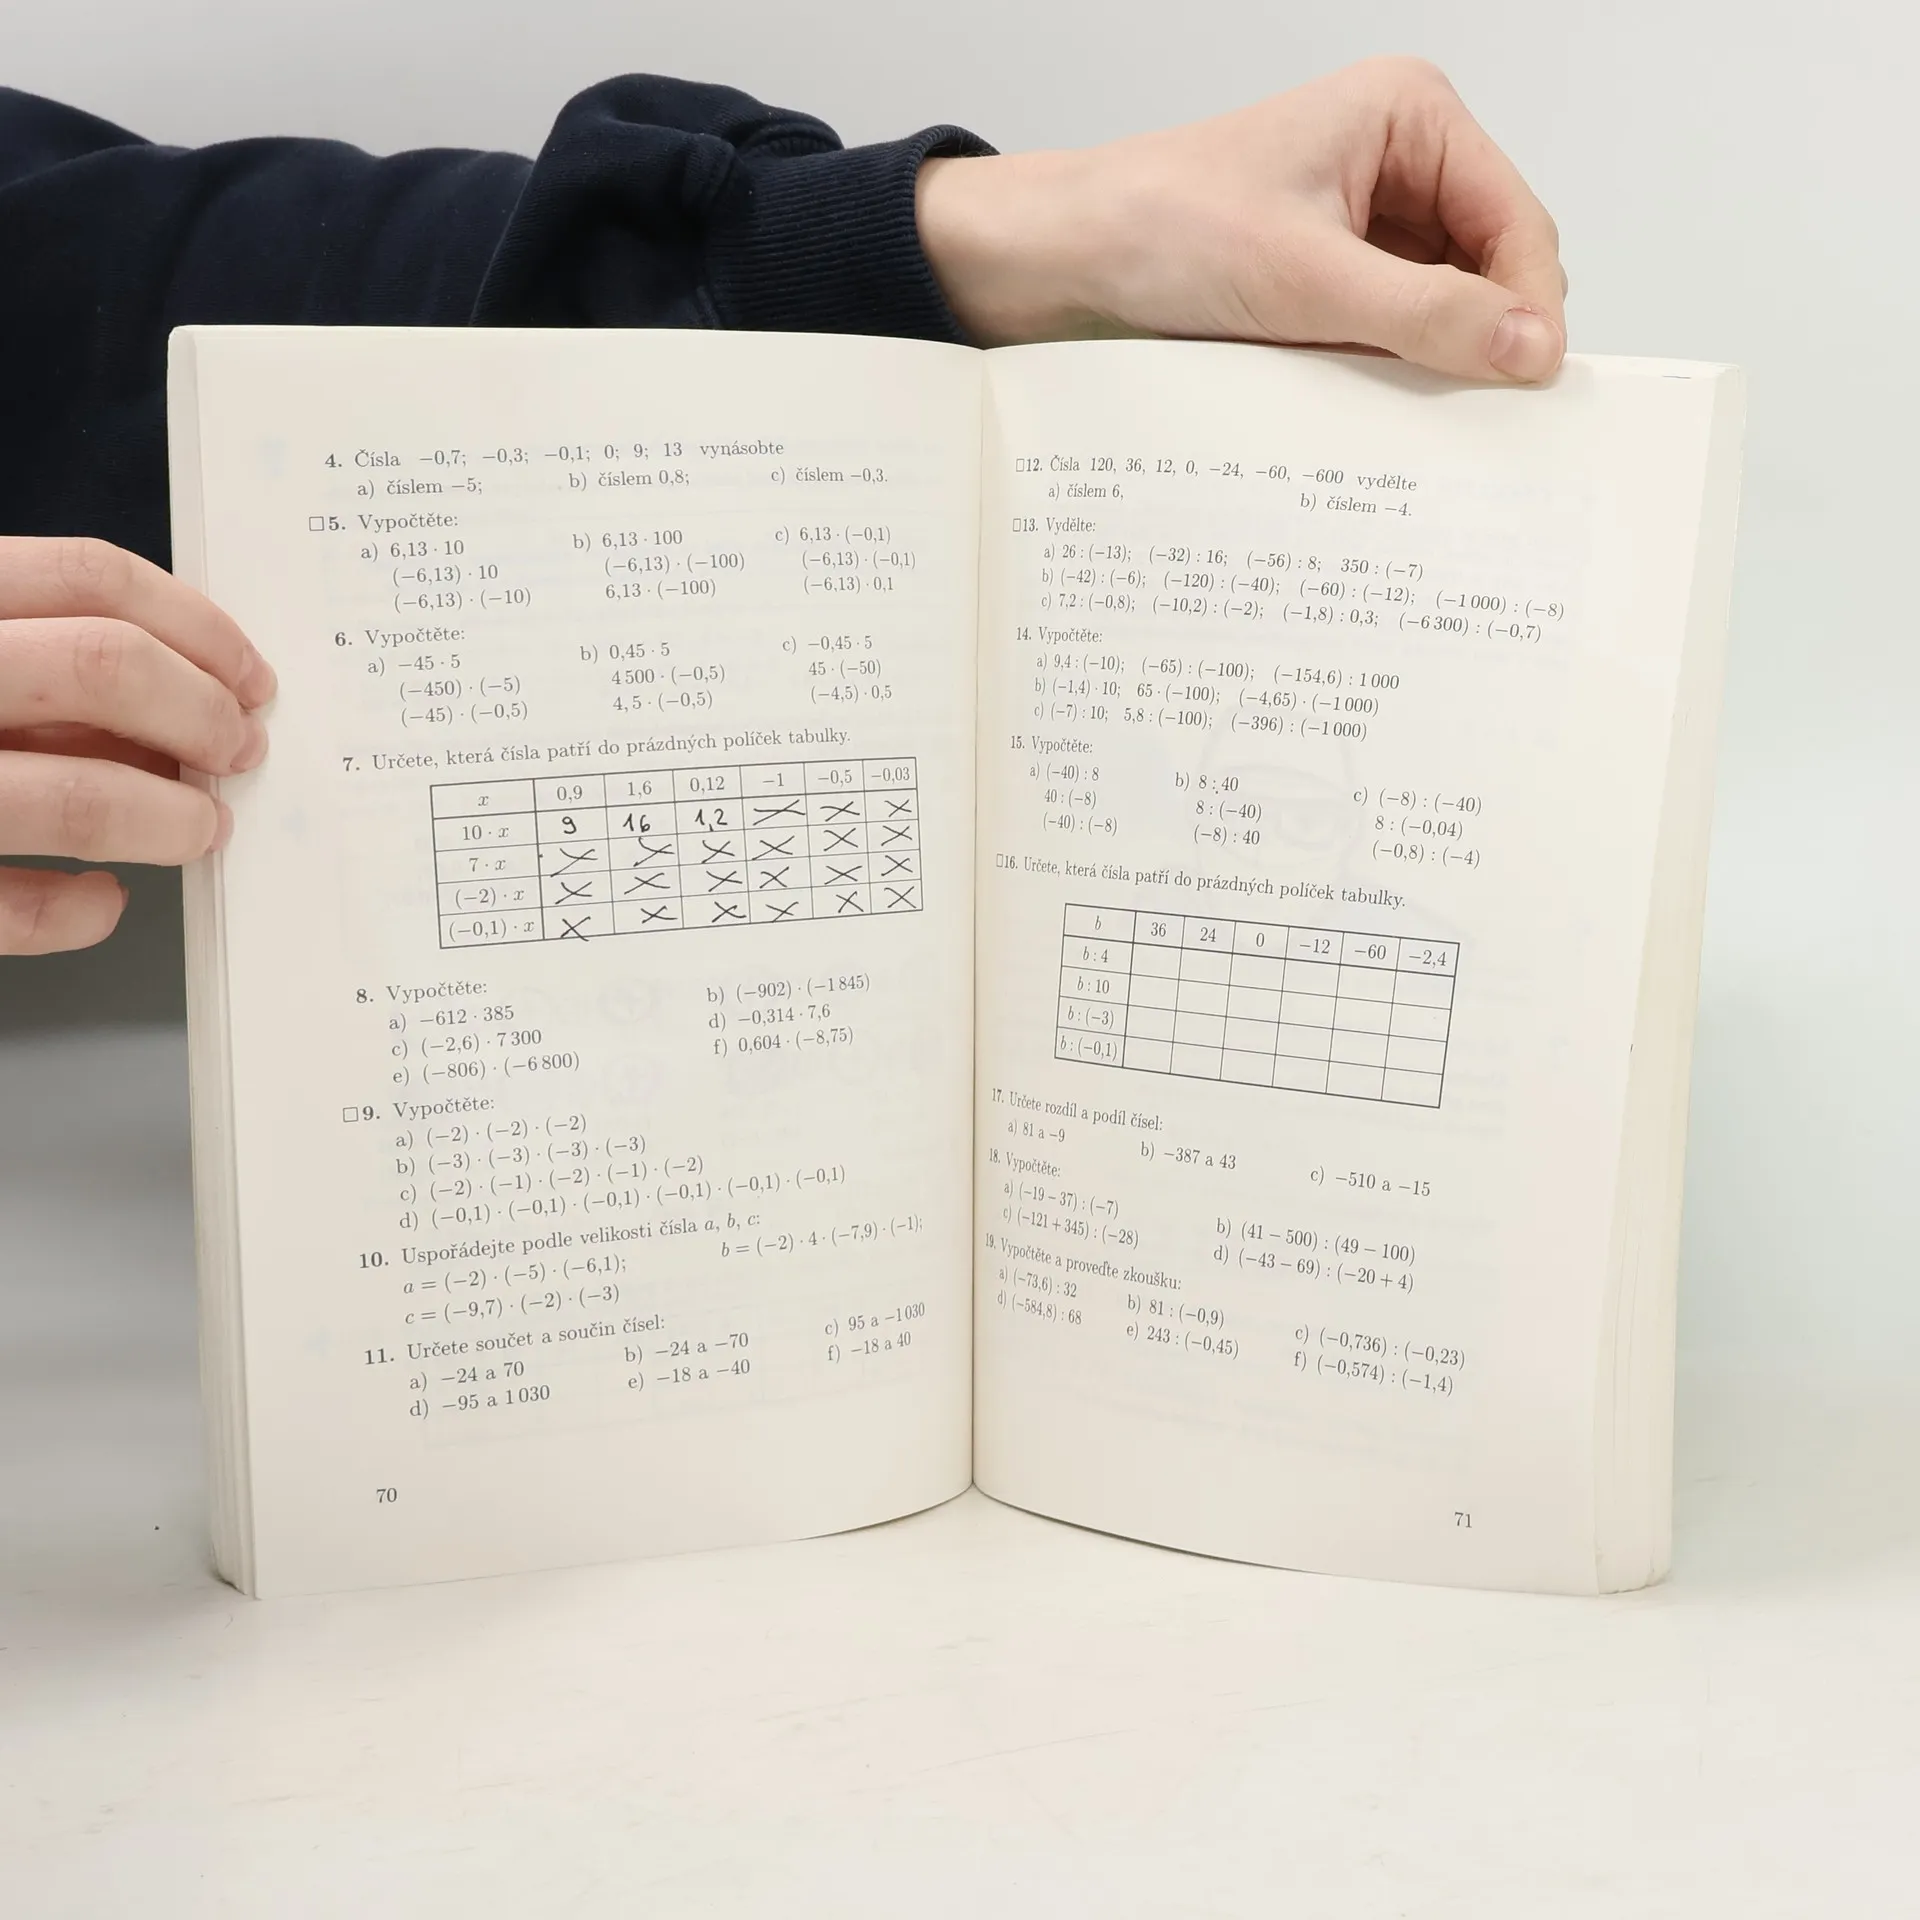 4. Čísla −0,7; −0,3; −0,1; 0; 9; 13 vynásobte
a) číslem −5; b) číslem 0,8; c) číslem −0,3.
□5. Vypočtěte:
a) 6,13 · 10 b) 6,13 · 100 c) 6,13 · (−0,1)
(−6,13) · 10 (−6,13) · (−100) (−6,13) · (−0,1)
(−6,13) · (−10) 6,13 · (−100) (−6,13) · 0,1
6. Vypočtěte:
a) −45 · 5 b) 0,45 · 5 c) −0,45 · 5
(−450) · (−5) 4 500 · (−0,5) 45 · (−50)
(−45) · (−0,5) 4, 5 · (−0,5) (−4,5) · 0,5
7. Určete, která čísla patří do prázdných políček tabulky.
x 0,9 1,6 0,12 −1 −0,5 −0,03
10 · x 9 16 1,2 X X X
7 · x X X X X X X
(−2) · x X X X X X X
(−0,1) · x X X X X X X
8. Vypočtěte:
a) −612 · 385 b) (−902) · (−1 845)
c) (−2,6) · 7 300 d) −0,314 · 7,6
e) (−806) · (−6 800) f) 0,604 · (−8,75)
□9. Vypočtěte:
a) (−2) · (−2) · (−2)
b) (−3) · (−3) · (−3) · (−3)
c) (−2) · (−1) · (−2) · (−1) · (−2)
d) (−0,1) · (−0,1) · (−0,1) · (−0,1) · (−0,1) · (−0,1)
10. Uspořádejte podle velikosti čísla a, b, c:
a = (−2) · (−5) · (−6,1); b = (−2) · 4 · (−7,9) · (−1);
c = (−9,7) · (−2) · (−3)
11. Určete součet a součin čísel:
a) −24 a 70 b) −24 a −70 c) 95 a −1 030
d) −95 a 1 030 e) −18 a −40 f) −18 a 40
70
□12. Čísla 120, 36, 12, 0, −24, −60, −600 vydělte
a) číslem 6, b) číslem −4.
□13. Vydělte:
a) 26 : (−13); (−32) : 16; (−56) : 8; 350 : (−7)
b) (−42) : (−6); (−120) : (−40); (−60) : (−12); (−1 000) : (−8)
c) 7,2 : (−0,8); (−10,2) : (−2); (−1,8) : 0,3; (−6 300) : (−0,7)
14. Vypočtěte:
a) 9,4 : (−10); (−65) : (−100); (−154,6) : 1 000
b) (−1,4) · 10; 65 · (−100); (−4,65) · (−1 000)
c) (−7) : 10; 5,8 : (−100); (−396) : (−1 000)
15. Vypočtěte:
a) (−40) : 8 b) 8 : 40 c) (−8) : (−40)
40 : (−8) 8 : (−40) 8 : (−0,04)
(−40) : (−8) (−8) : 40 (−0,8) : (−4)
□16. Určete, která čísla patří do prázdných políček tabulky.
b 36 24 0 −12 −60 −2,4
b : 4
b : 10
b : (−3)
b : (−0,1)
17. Určete rozdíl a podíl čísel:
a) 81 a −9 b) −387 a 43 c) −510 a −15
18. Vypočtěte:
a) (−19 − 37) : (−7) b) (41 − 500) : (49 − 100)
c) (−121 + 345) : (−28) d) (−43 − 69) : (−20 + 4)
19. Vypočtěte a proveďte zkoušku:
a) (−73,6) : 32 b) 81 : (−0,9) c) (−0,736) : (−0,23)
d) (−584,8) : 68 e) 243 : (−0,45) f) (−0,574) : (−1,4)
71